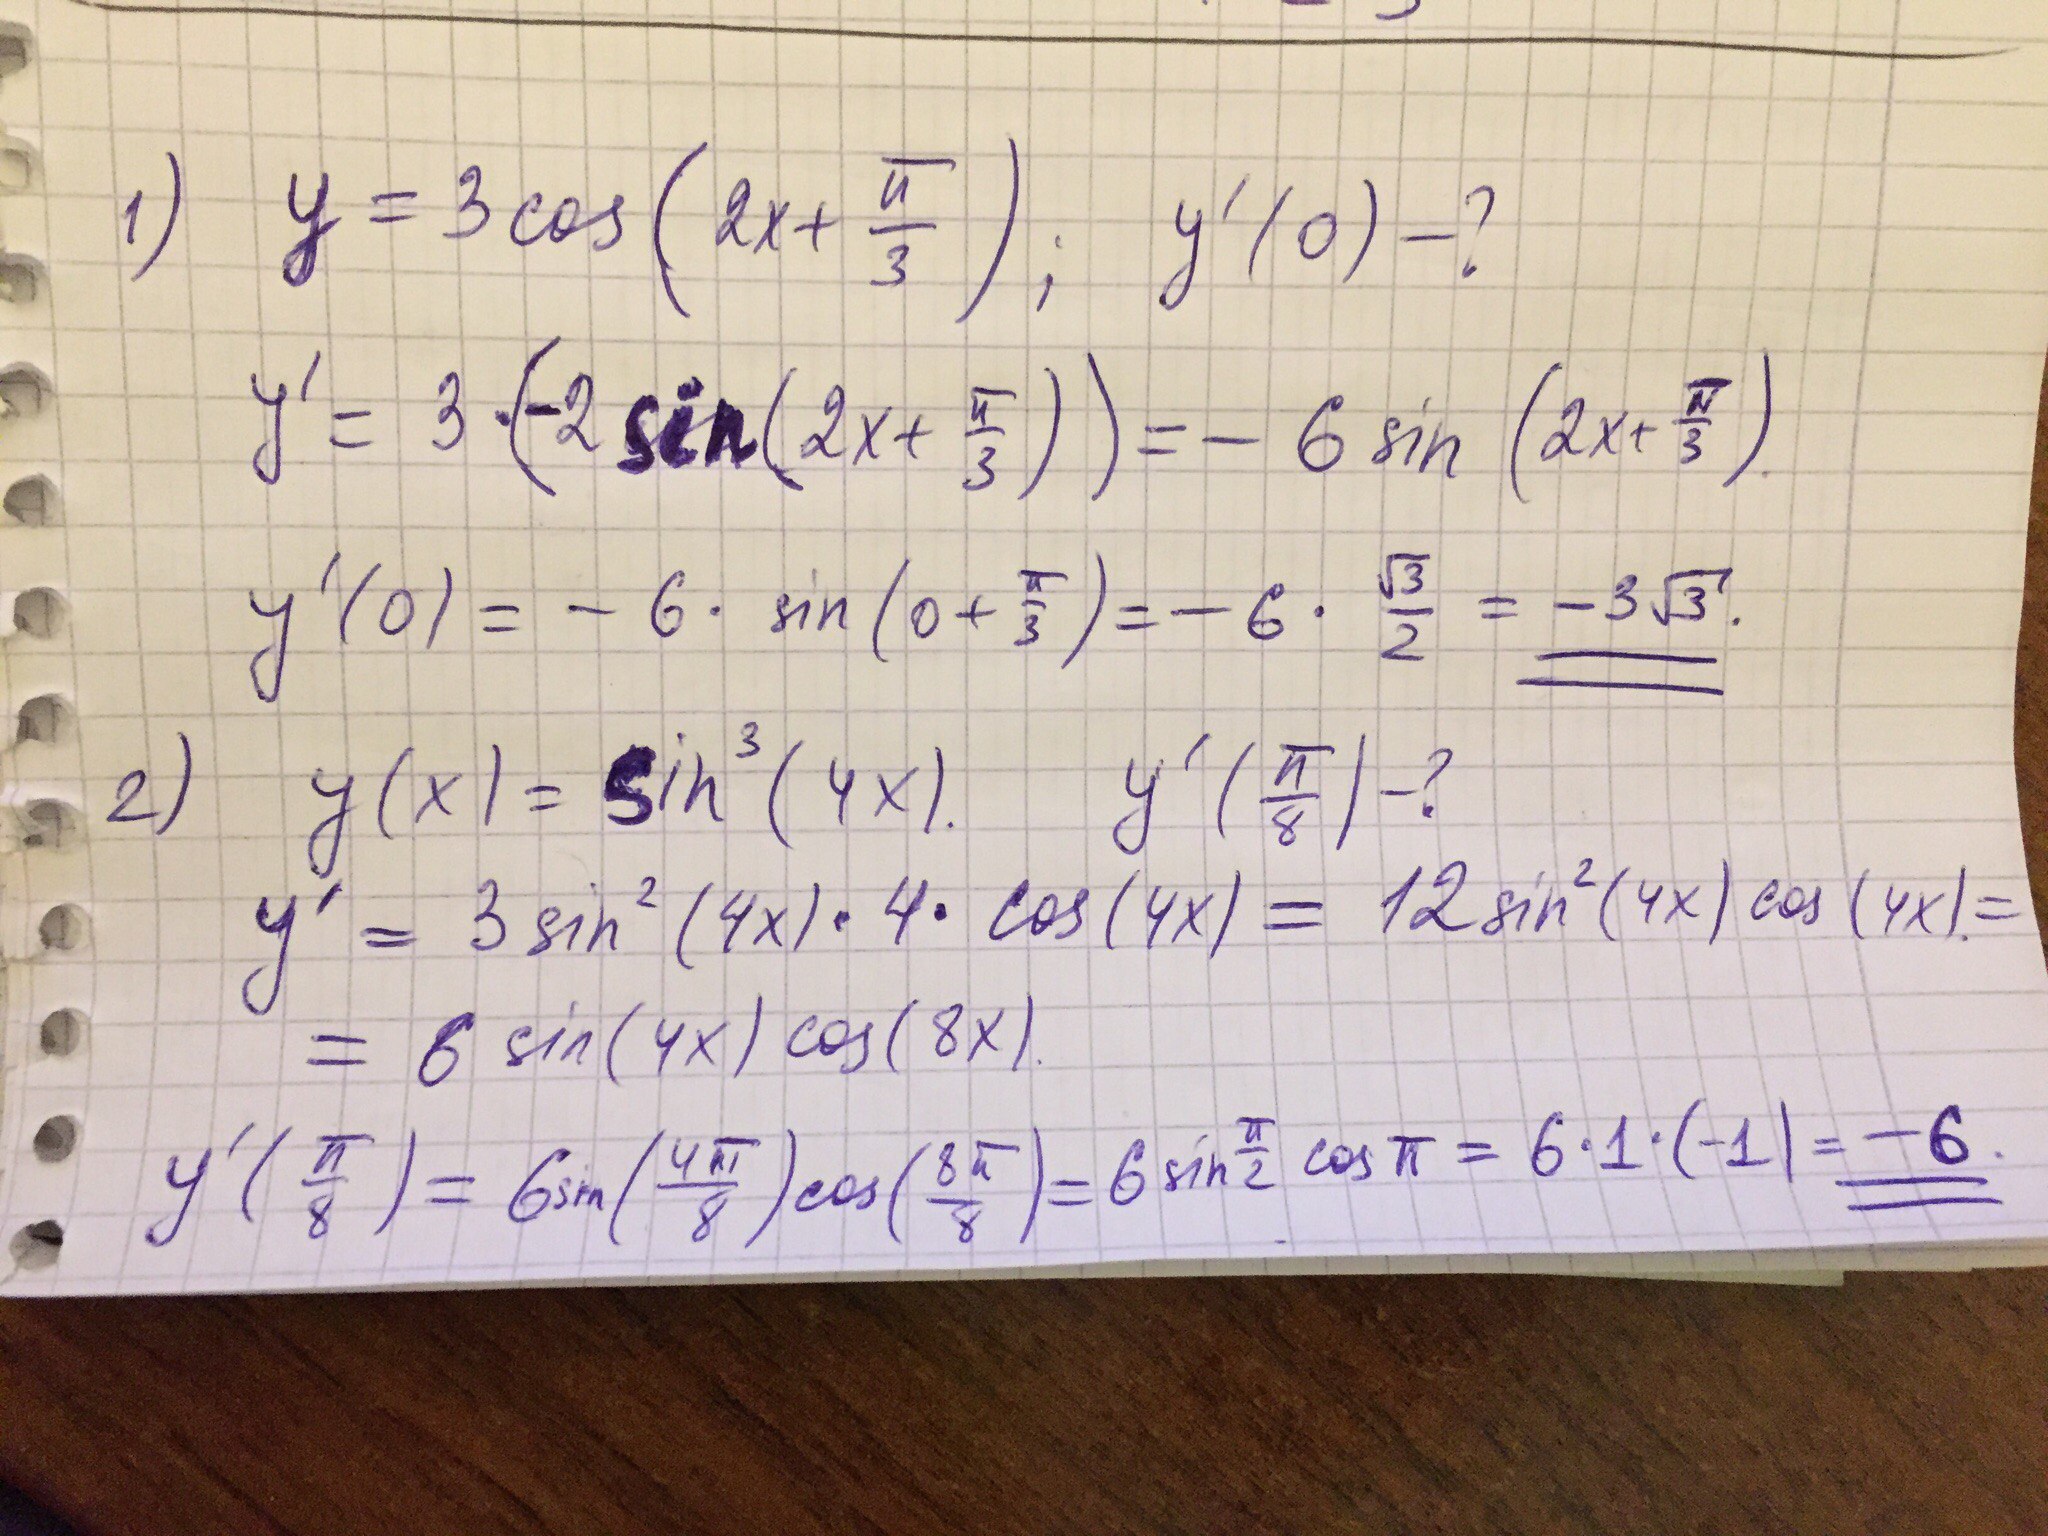 1) y = 3 cos(2x + π/3); y'(0) - ?
y' = 3 · (-2 sin(2x + π/3)) = - 6 sin (2x + π/3).
y'(0) = - 6 · sin(0 + π/3) = - 6 · √3/2 = -3√3.
2) y(x) = sin³(4x). y'(π/8) - ?
y' = 3 sin²(4x) · 4 · cos(4x) = 12 sin²(4x) cos(4x). =
= 6 sin(4x) cos(8x).
y'(π/8) = 6 sin(4π/8) cos(8π/8) = 6 sin π/2 cos π = 6 · 1 · (-1) = -6.